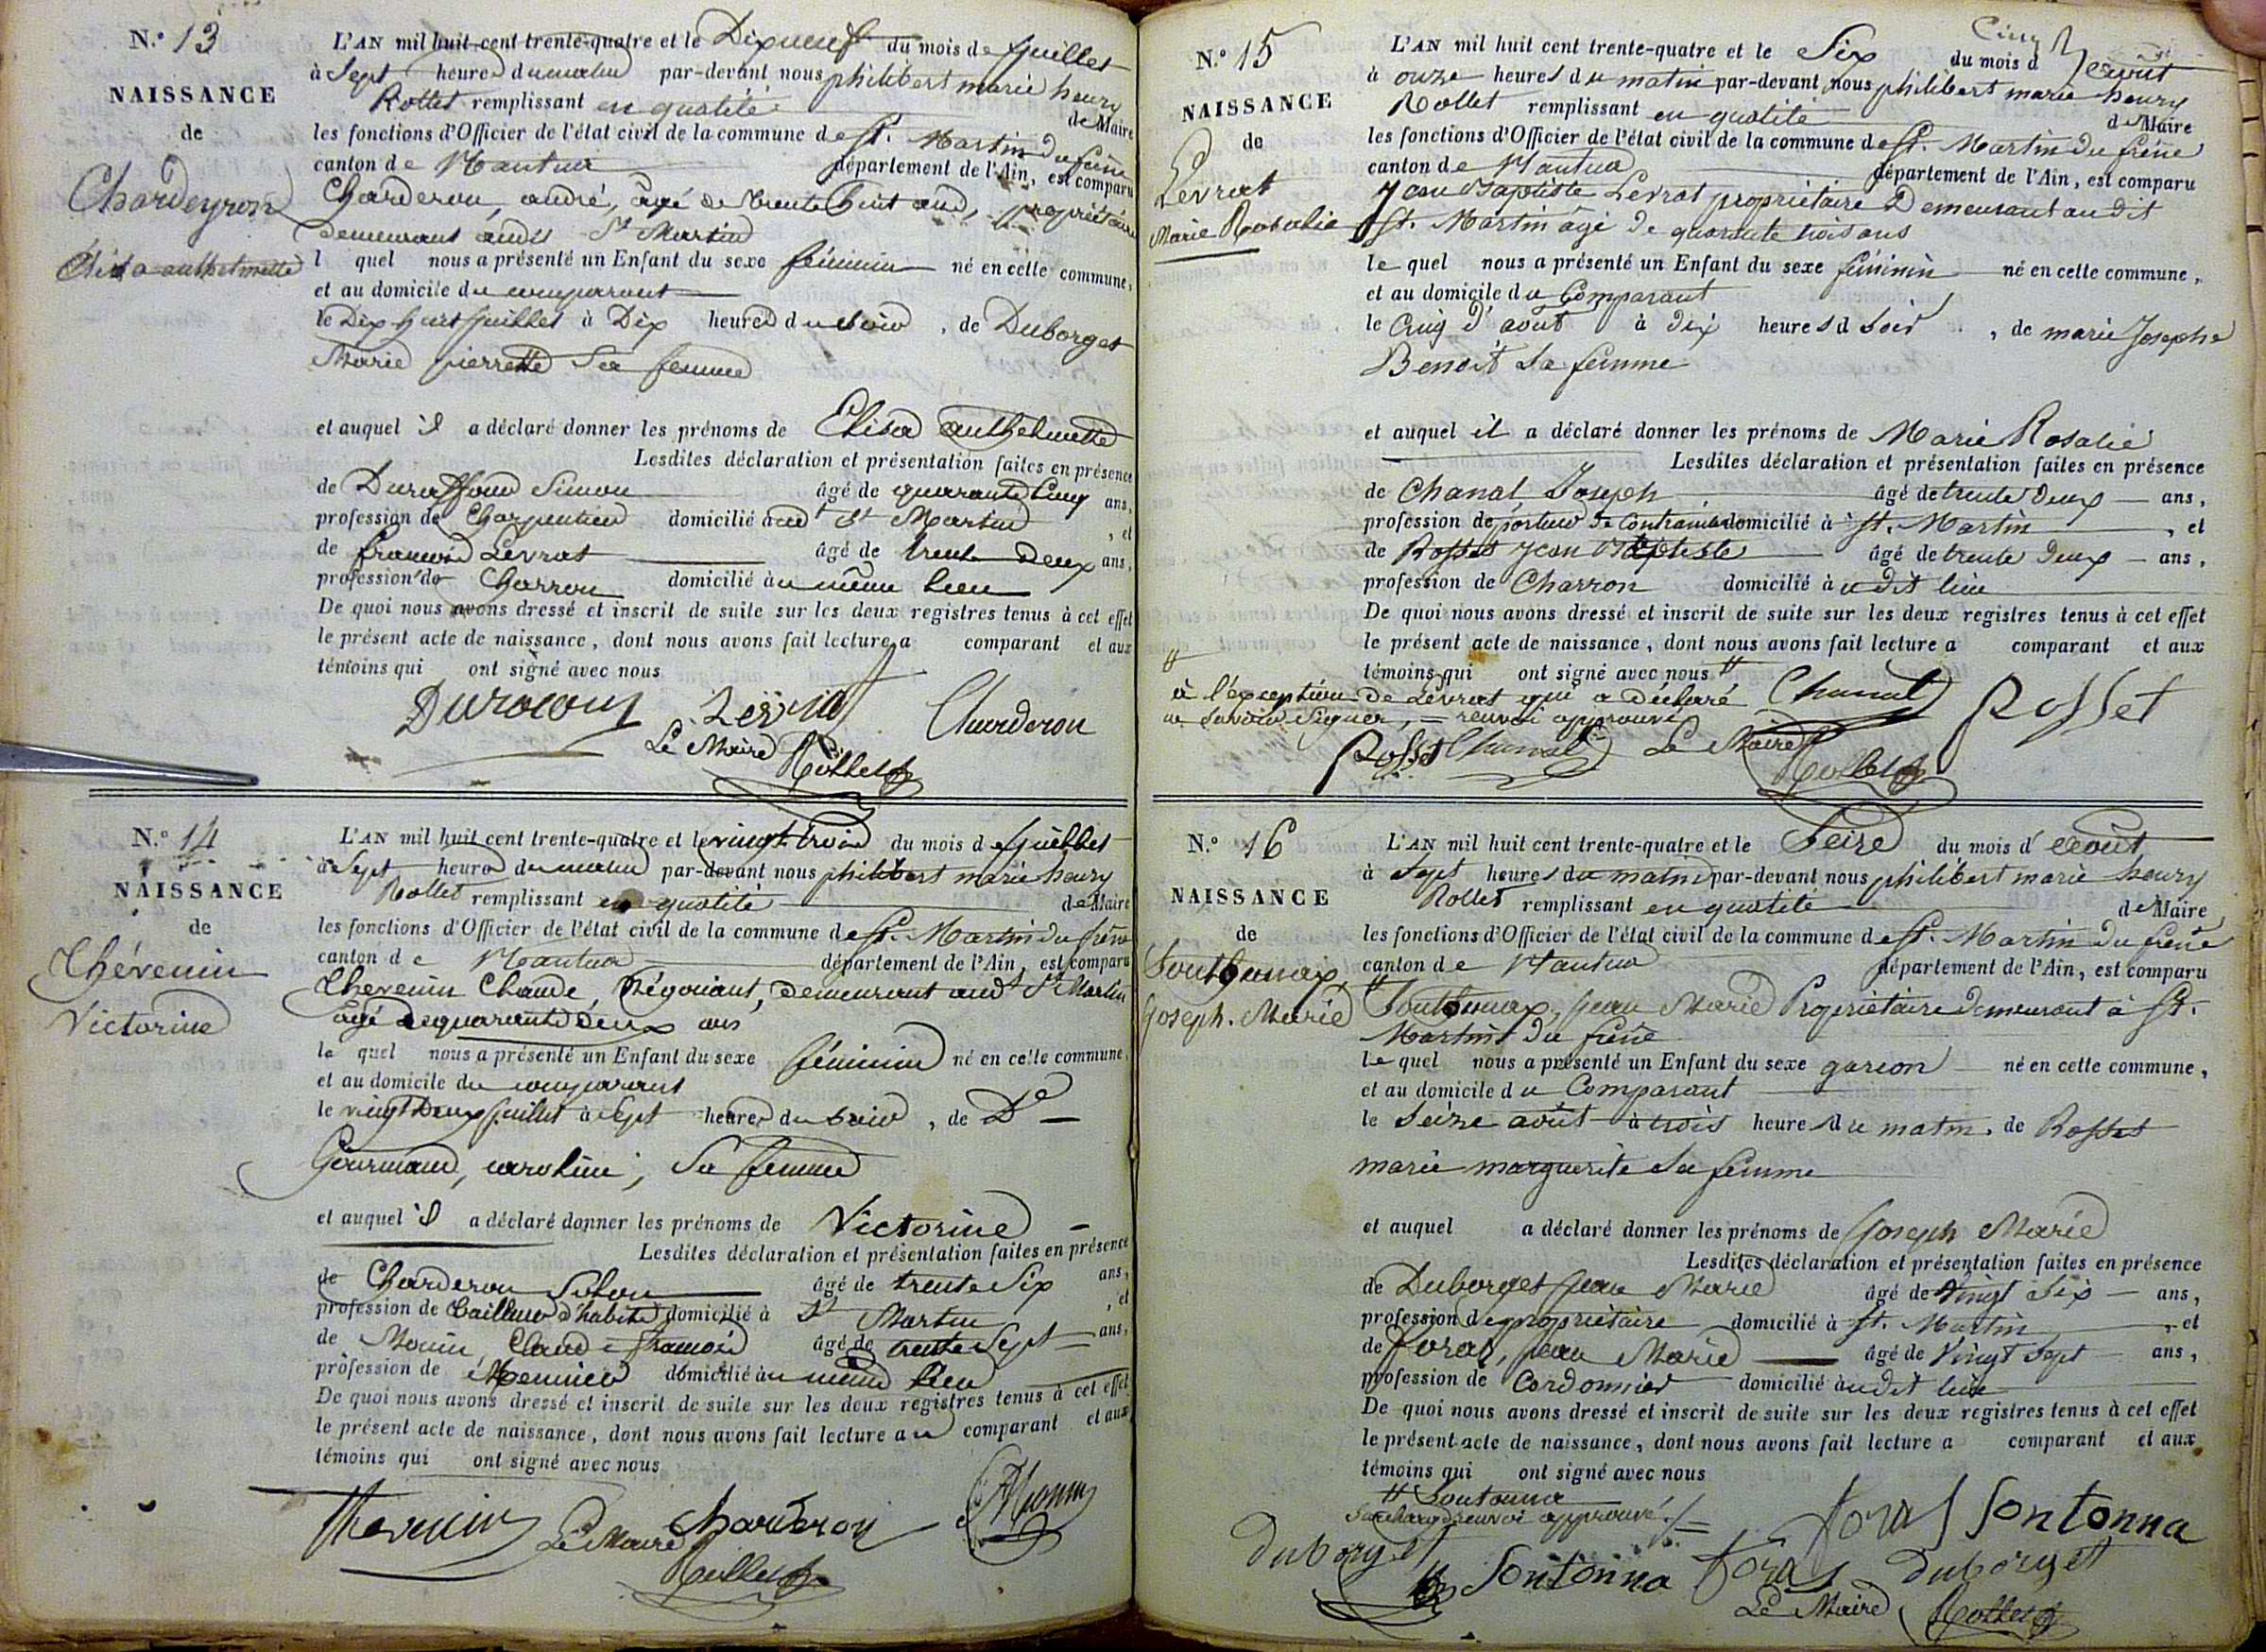 N.° 13
NAISSANCE
de
Charderon
Elisa anthelmette
L'AN mil huit cent trente-quatre et le Dixneuf du mois de Juillet
à Sept heures du matin par-devant nous philibert marie henry
Rollet remplissant en qualité de Maire
les fonctions d'Officier de l'état civil de la commune de St. Martin du frêne
canton de Nantua département de l'Ain, est comparu
Charderon, andré, âgé de trente huit ans, propriétaire
demeurant audit St Martin
l quel nous a présenté un Enfant du sexe féminin né en cette commune,
et au domicile du comparant
le Dix huit Juillet à Dix heures du Soir, de Duborget
Marie pierrette Sa femme
et auquel il a déclaré donner les prénoms de Elisa anthelmette
Lesdites déclaration et présentation faites en présence
de Duraffour Simon âgé de quarante Cinq ans,
profession de Charpentier domicilié aud St Martin, et
de françois Levrat âgé de trente Deux ans,
profession de Charron domicilié au même lieu
De quoi nous avons dressé et inscrit de suite sur les deux registres tenus à cet effet
le présent acte de naissance, dont nous avons fait lecture a comparant et aux
témoins qui ont signé avec nous
Levrat Charderon
Le Maire
Rollet
N.° 14
NAISSANCE
de
Thévenin
Victorine
L'AN mil huit cent trente-quatre et le vingt trois du mois de Juillet
à Sept heures du matin par-devant nous philibert marie henry
Rollet remplissant en qualité de Maire
les fonctions d'Officier de l'état civil de la commune de St. Martin du frêne
canton de Nantua département de l'Ain, est comparu
Thevenin Claude, Négociant, demeurant aud St Martin
âgé de quarante deux ans
le quel nous a présenté un Enfant du sexe féminin né en cette commune,
et au domicile du comparant
le vingt Deux Juillet à Sept heures du Soir, de De
Gourmand, caroline, Sa femme
et auquel il a déclaré donner les prénoms de Victorine
Lesdites déclaration et présentation faites en présence
de Charderon âgé de trente Six ans,
profession de tailleur d'habits domicilié à St Martin, et
de Monin, Claude françois âgé de trente Sept ans,
profession de Menuisier domicilié au même lieu
De quoi nous avons dressé et inscrit de suite sur les deux registres tenus à cet effet
le présent acte de naissance, dont nous avons fait lecture au comparant et aux
témoins qui ont signé avec nous
Thevenin Charderon Monin
Le Maire
Rollet
N.° 15
NAISSANCE
de
Levrat
Marie Rosalie
L'AN mil huit cent trente-quatre et le Six du mois d'août
à onze heures du matin par-devant nous philibert marie henry
Rollet remplissant en qualité de Maire
les fonctions d'Officier de l'état civil de la commune de St. Martin du frêne
canton de Nantua département de l'Ain, est comparu
Jean Baptiste Levrat propriétaire Demeurant au dit
St. Martin âgé de quarante trois ans
le quel nous a présenté un Enfant du sexe féminin né en cette commune,
et au domicile du Comparant
le Cinq d'août à dix heures d Soir, de marie Josephe
Benoit sa femme
et auquel il a déclaré donner les prénoms de Marie Rosalie
Lesdites déclaration et présentation faites en présence
de Chanal Joseph âgé de trente Deux ans,
profession de porteur de Contraintes domicilié à St. Martin, et
de Rosset Jean Baptiste âgé de trente Deux ans,
profession de Charron domicilié au dit lieu
De quoi nous avons dressé et inscrit de suite sur les deux registres tenus à cet effet
le présent acte de naissance, dont nous avons fait lecture a comparant et aux
témoins qui ont signé avec nous #
# à l'exception de Levrat qui a déclaré
ne Savoir Signer, = renvoi approuvé
Chanal Rosset
Rosset Chanal Le Maire
Rollet
N.° 16
NAISSANCE
de
Joseph. Marie
L'AN mil huit cent trente-quatre et le Seize du mois d'août
à Sept heures du matin par-devant nous philibert marie henry
Rollet remplissant en qualité de Maire
les fonctions d'Officier de l'état civil de la commune de St. Martin du frêne
canton de Nantua département de l'Ain, est comparu
Jean Marie Propriétaire demeurant à St.
Martin du frêne
le quel nous a présenté un Enfant du sexe garçon né en cette commune,
et au domicile du Comparant
le Seize août à trois heures du matin, de Rosset
marie marguerite Sa femme
et auquel a déclaré donner les prénoms de Joseph Marie
Lesdites déclaration et présentation faites en présence
de Duborget Jean Marie âgé de Vingt Six ans,
profession de propriétaire domicilié à St. Martin, et
de foras, Jean Marie âgé de Vingt Sept ans,
profession de Cordonnier domicilié au dit lieu
De quoi nous avons dressé et inscrit de suite sur les deux registres tenus à cet effet
le présent acte de naissance, dont nous avons fait lecture a comparant et aux
témoins qui ont signé avec nous
# Sontonna
Surcharge renvoi approuvé
foras Sontonna
Duborget Sontonna foras Duborget
Le Maire Rollet